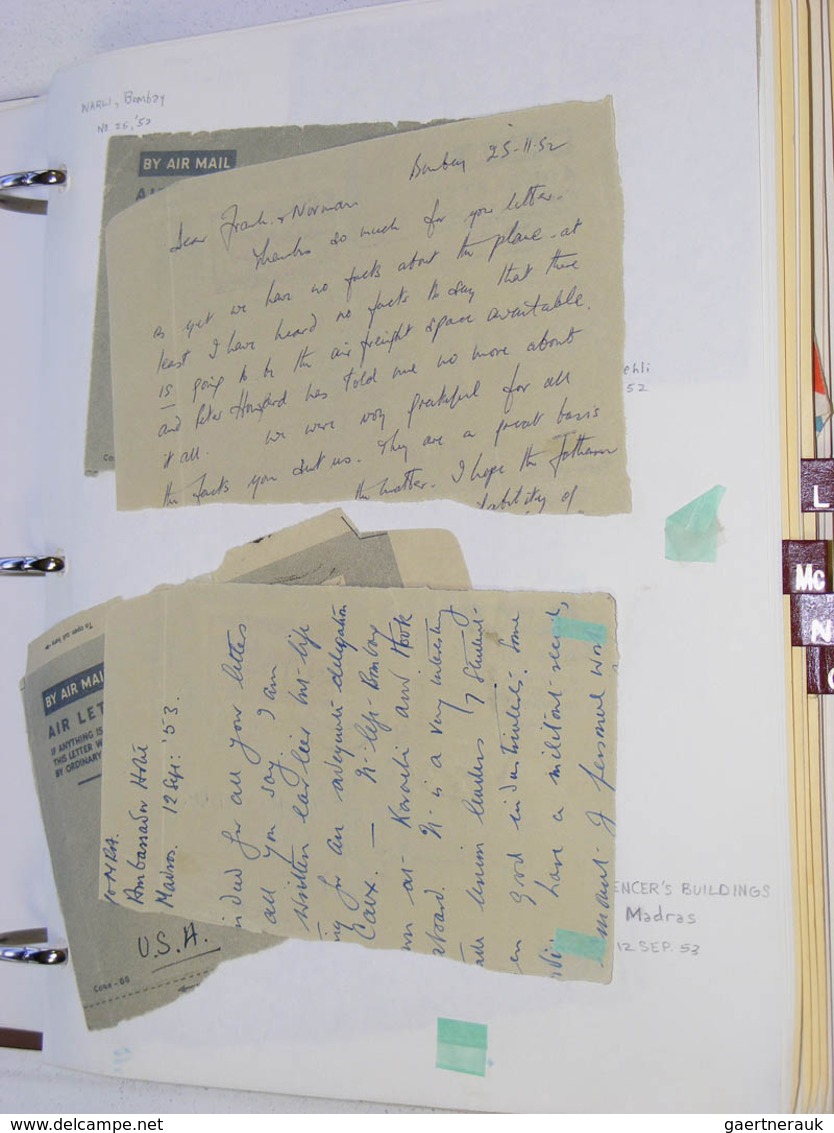 WARLI, Bombay
BY AIR MAIL
Bombay 25-11-52
Dear Frank & Norman
Thanks so much for your letter.
as yet we have no facts about the plane - at
least I have heard no facts to say that there
is going to be the air freight space available.
and Peter Howard has told me no more about
it all. We were very grateful for all
the facts you sent us. They are a great basis
the matter. I hope the
ability of
ehli
52
L
Mc
N
To open cut here
BY AIR MAI
AIR LET
IF ANYTHING IS
THIS LETTER W
BY ORDINARY
MRA.
Ambassador Hotel
Madras. 12 Sept: '53.
for all your letters
all you say. I am
written earlier but life
ing for an adequate delegation
Caux. — left Bombay
at Karachi and Hook
aboard. It is a very interesting
leaders, 7 Student-
en good industrialists. Some
have a militant
amount of personal wor
U.S.A.
Code-00
ENCER'S BUILDINGS
Madras
12 SEP. 53
www.delcampe.net
gaertnerauk